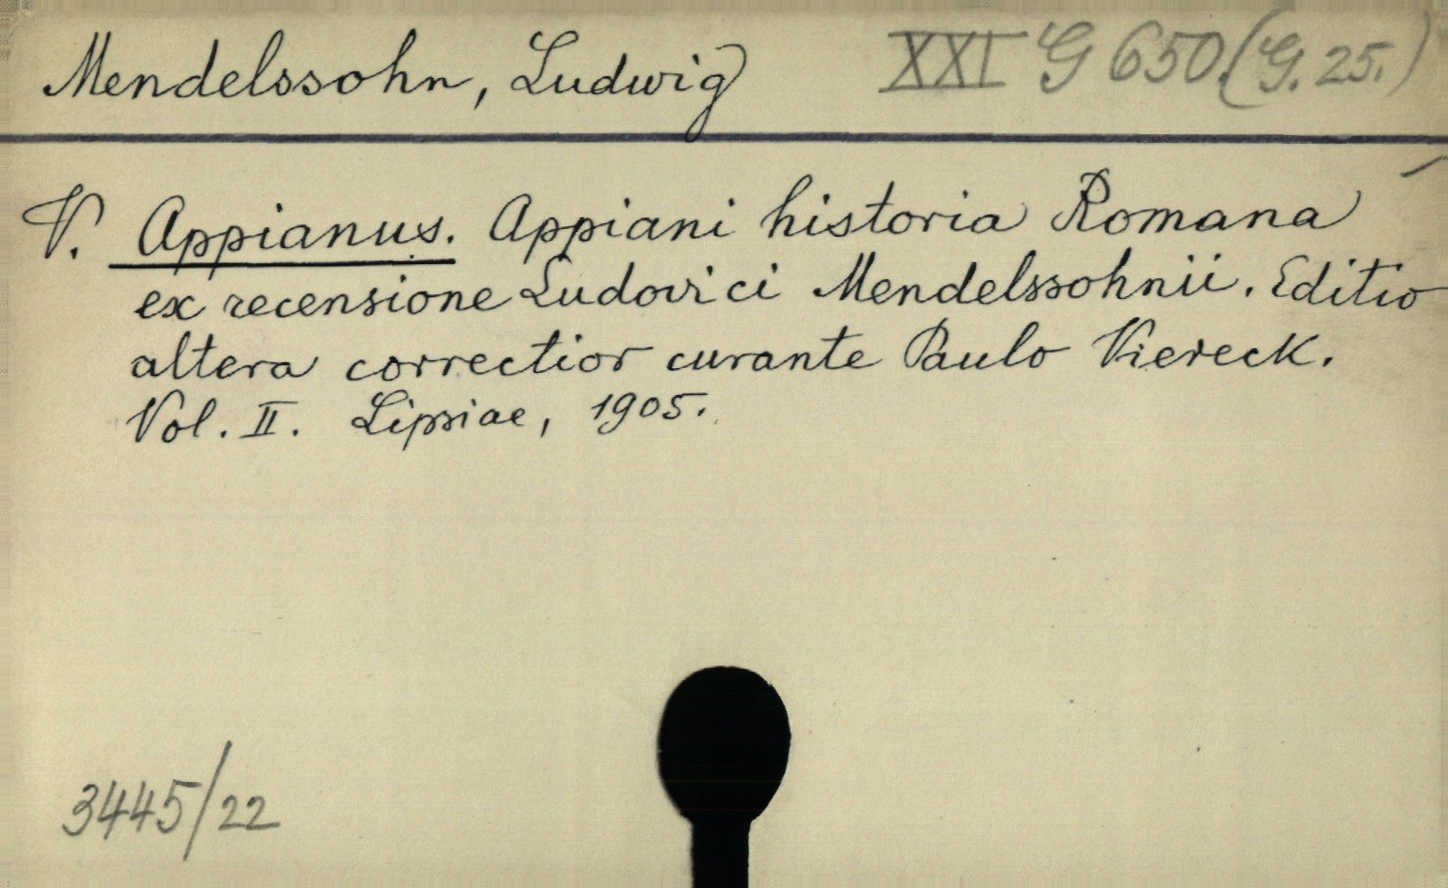 Mendelssohn, Ludwig XXI G 650.(G. 25.)
V. Appianus. Appiani historia Romana
ex recensione Ludovici Mendelssohnii. Editio
altera correctior curante Paulo Viereck.
Vol. II. Lipsiae, 1905.
3445/22